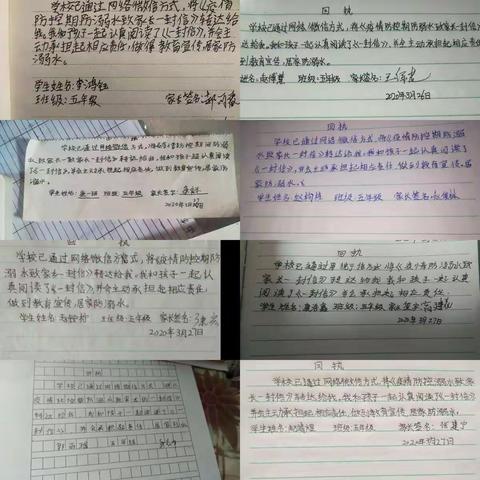 学校已通过网络微信方式,将《疫情
防控期防溺水致家长一封信》转达给
我。我和孩子一起认真阅读了《一封信》,并会主
动承担起相应责任,做到教育宣传,居家防
溺水。
学生姓名:李鸿钰
班级:五年级 家长签名:
回执
学校已通过网络微信方式,将《疫情防控期防溺水致家长一封信》转
达给我。我和孩子一起认真阅读了《一封信》,并会主动承担起相应责任
到教育宣传,居家防溺水。
班级:五年级 家长签名:
2020年3月26日
学校已通过网络微信方式,将《疫情防控期间防溺
水致家长一封信》转达给我,我和孩子一起认真阅读
了《一封信》,并会主动承担起相应责任,做到教育宣传,居家防
溺水。
学生姓名: 班级:五年级 家长签字:
2020年3月27日
回执
学校已通过网络微信方式,将《疫情防控期防溺
水致家长一封信》转达给我,我和孩子一起认真阅读了
《一封信》,并会主动承担起相应责任,做到教育宣传,居
家防溺水。
学生姓名: 班级:五年级 家长签名:
执
学校已通过网络微信方式,将《疫情防控期防
溺水致家长一封信》转达给我,我和孩子一起认
真阅读了《一封信》,并会主动承担起相应责任,
做到教育宣传,居家防溺水。
学生姓名: 班级:五年级 家长签名:
2020年3月27日
回执
学校已通过 方式将《疫情防控期防溺水致
家长一封信》转达给我,我和孩子一起认真
阅读了《一封信》并会主动承担起相应责任
学生姓名: 班级:五年级 家长签字:
2020年3月27日
回执
学校已通过网络微信方式,将《
疫情防控期防溺水致家长一封信》
转达给我,我和孩子一起认真阅读了《
一封信》,并会主动承担起相应责任
五年级
回执
学校已通过网络微信方式,将《疫情防控期防溺水致家
长一封信》转达给我,我和孩子一起认真阅读了《一封信》
并会主动承担起相应责任,做到教育宣传,居家防溺水。
学生姓名: 班级:五年级 家长签名:
2020年3月27日